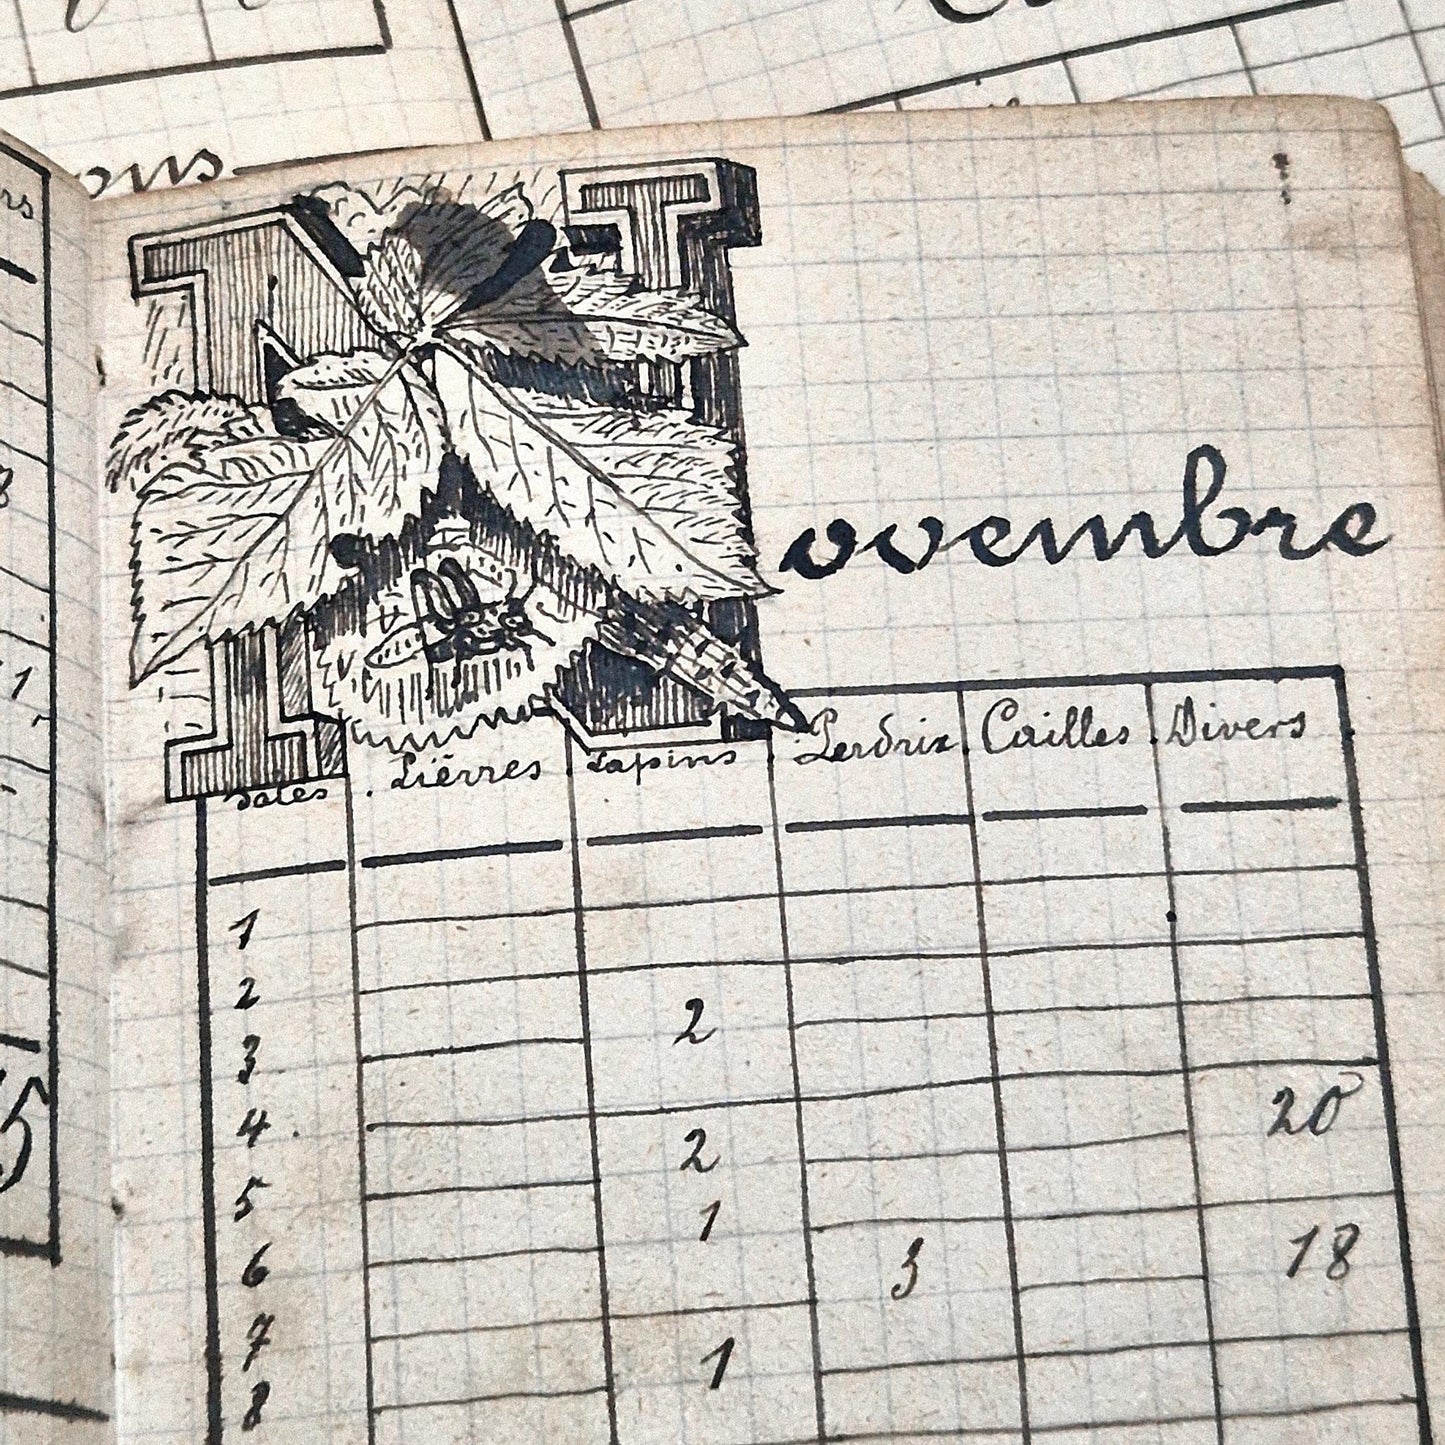 ons
rs
Novembre
Dates Lièvres Lapins Perdrix Cailles Divers
1
2
3 2
4
5 2 20
6 1
7 3 18
8 1